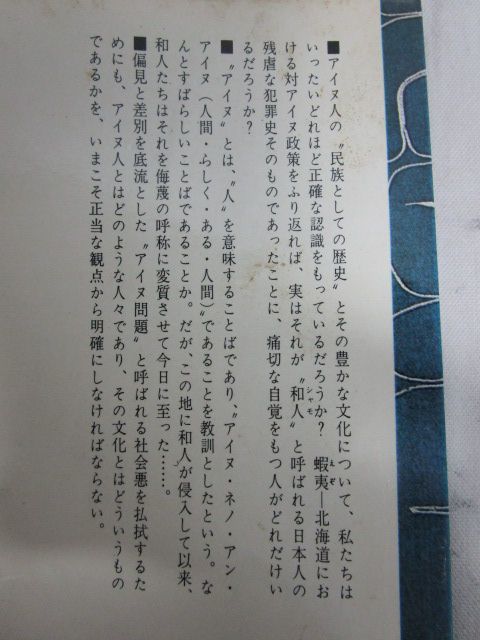 ■アイヌ人の〝民族としての歴史〟とその豊かな文化について、私たちは
いったいどれほど正確な認識をもっているだろうか？　蝦夷―北海道にお
ける対アイヌ政策をふり返れば、実はそれが〝和人〟と呼ばれる日本人の
残虐な犯罪史そのものであったことに、痛切な自覚をもつ人がどれだけい
るだろうか？
■〝アイヌ〟とは、〝人〟を意味することばであり、〝アイヌ・ネノ・アン・
アイヌ（人間・らしく・ある・人間）〟であることを教訓としたという。な
んとすばらしいことばであることか。だが、この地に和人が侵入して以来、
和人たちはそれを侮蔑の呼称に変質させて今日に至った……。
■偏見と差別を底流とした〝アイヌ問題〟と呼ばれる社会悪を払拭するた
めにも、アイヌ人とはどのような人々であり、その文化とはどういうもの
であるかを、いまこそ正当な観点から明確にしなければならない。